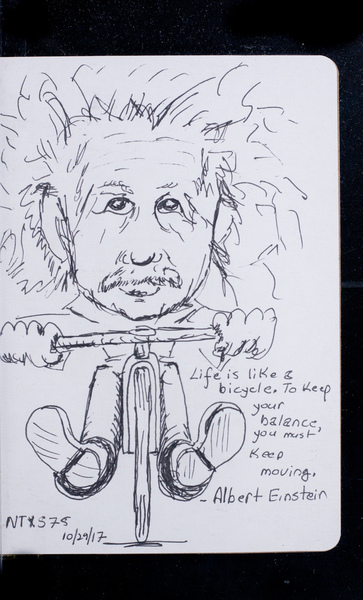 Life is like a
bicycle. To keep
your
balance,
you must
Keep
moving.
- Albert Einstein
NTXS75
10/29/17